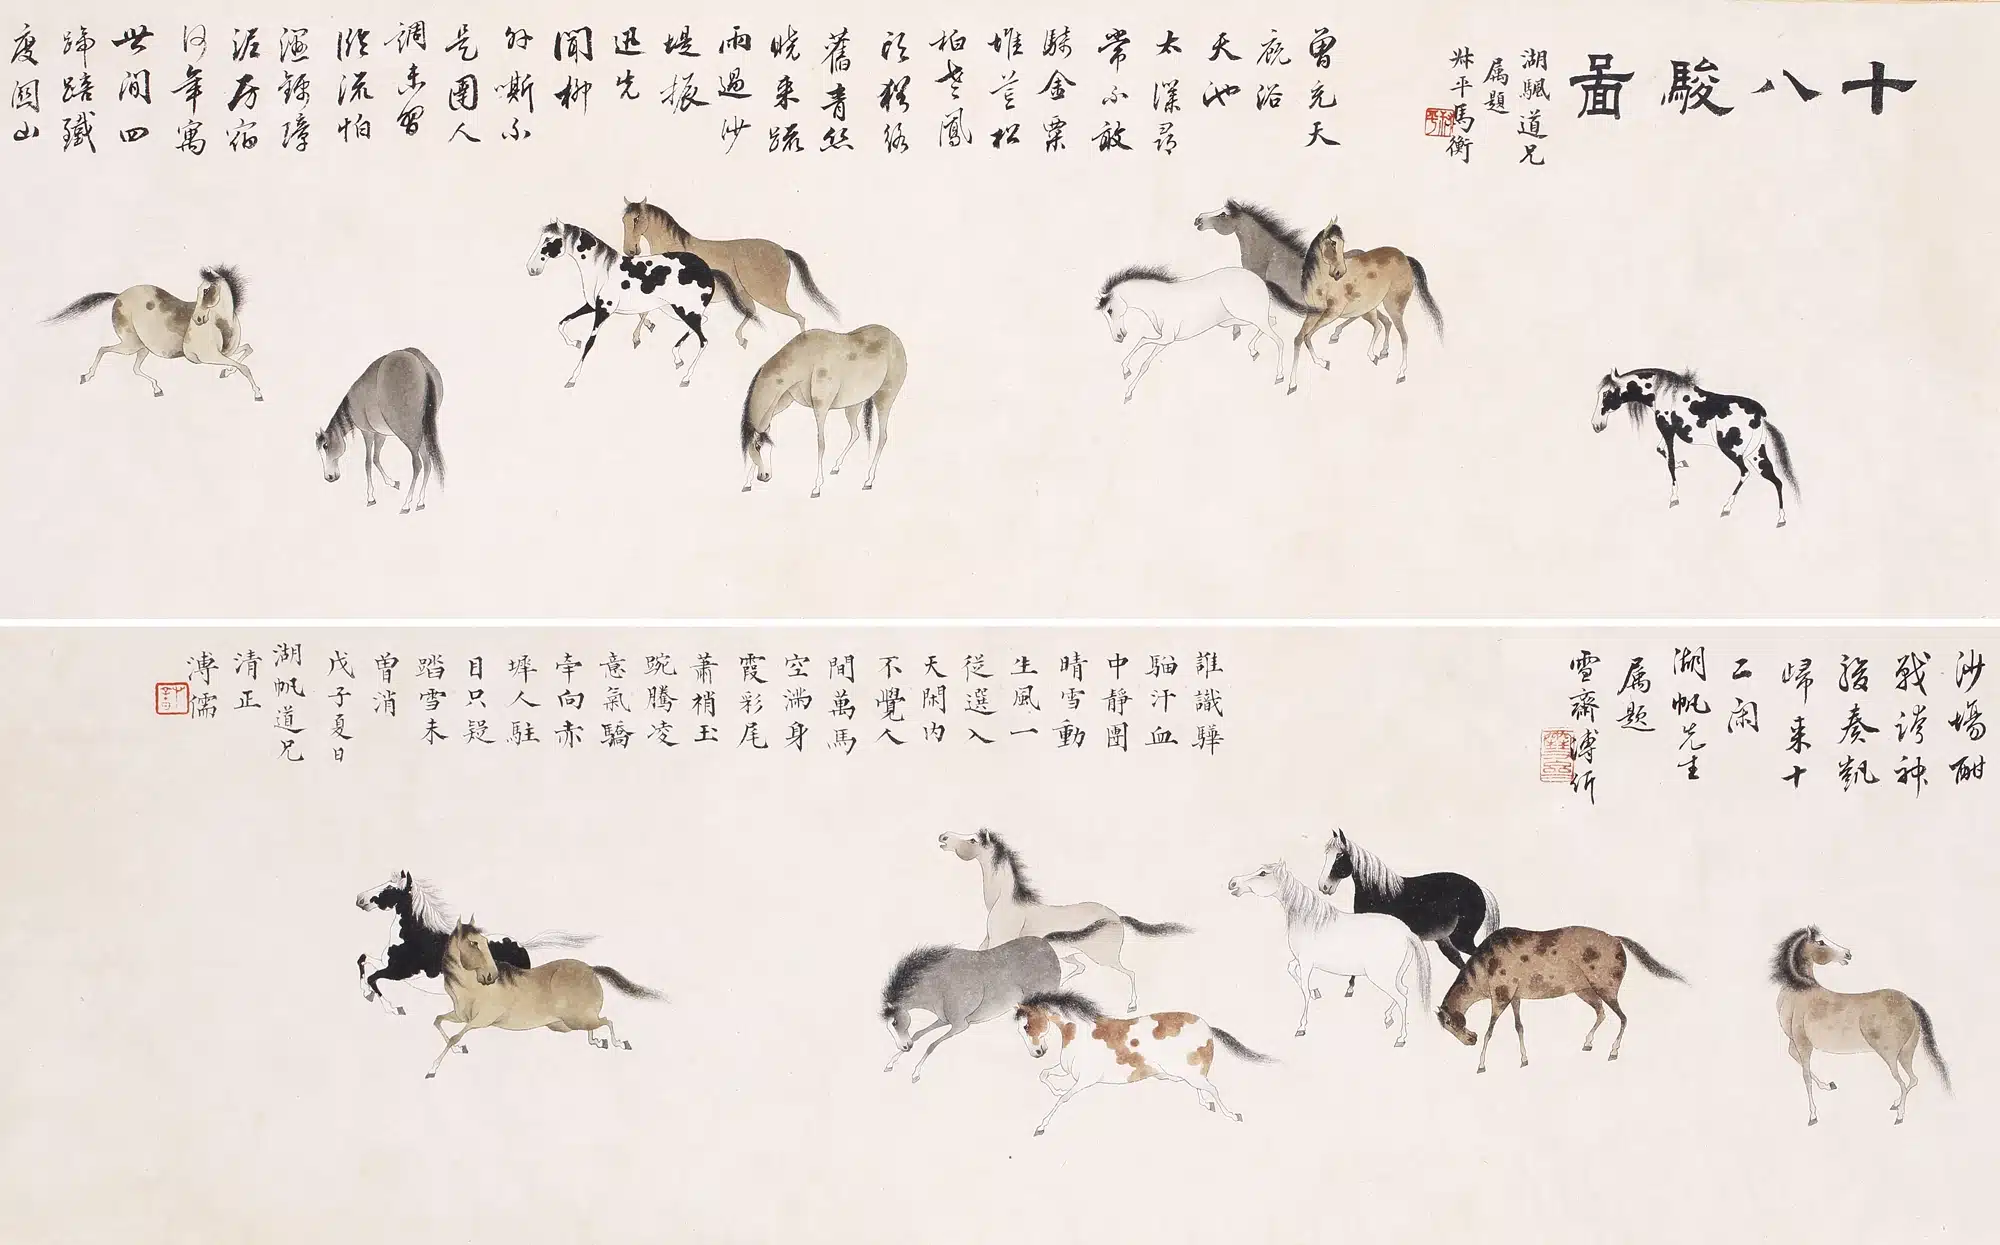 十八駿圖
湖颿道兄
属題
叔平馬衡
曾充天
厩浴
天池
太液尋
常不敢
騎金粟
堆松
柏老鳳
頭猶絡
舊青絲
曉来疏
雨過沙
堤振
迅先
聞柳
外嘶不
是圉人
調未習
臨流怕
溼錦障
泥房宿
何年寓
世間四
蹄踣鐵
度関山
沙場酣
戰誇神
駿奏凱
歸来十
二闲
湖帆先生
属题
雪齋溥伒
誰識驊
騮汗血
中静圉
晴雪動
生風一
從選入
天閑内
不覺人
間萬馬
空滿身
霞彩尾
蕭梢玉
踠騰凌
意氣驕
牽向赤
墀人駐
目只疑
踏雪未
曾消
戊子夏日
湖帆道兄
清正
溥儒